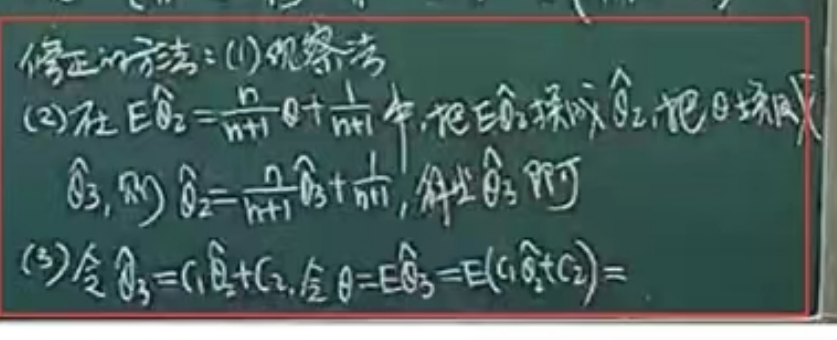 修正的方法：(1)观察法
(2)在 Eθ̂₂ = n/(n+1) θ + 1/(n+1) 中，把Eθ̂₂换成θ̂₂，把θ换成
θ̂₃，则 θ̂₂ = n/(n+1) θ̂₃ + 1/(n+1)，解出θ̂₃即可
(3)令 θ̂₃ = C₁θ̂₂ + C₂，令 θ = Eθ̂₃ = E(C₁θ̂₂ + C₂) =